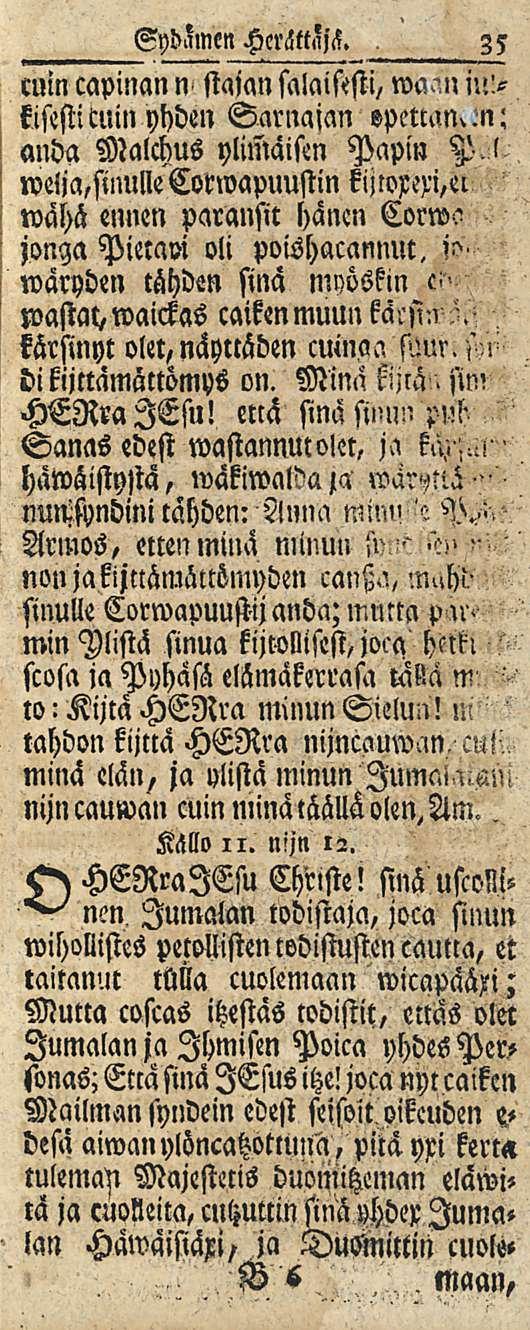 Sydämen Herättäjä. 35
cuin capinan n stajan salaisesti, waan jul-
kisesti cuin yhden Sarnajan opettanen;
anda Malchus ylimäisen Papin
welja, sinulle Corwapuustin kijtoxexi, et
wähä ennen paransit hänen Corwa
jonga Pietari oli poishacannut,
wäryden tähden sinä myöskin
wastat, waickas caiken muun
kärsinyt olet, näyttäden cuinga suur. syn
di kijttämättömys on. Minä kijtän sinu
HERra JEsu! että sinä sinun puh
Sanas edest wastannut olet, ja
häwäistystä, wäkiwalda ja wäryttä
nun syndini tähden: Anna minulle
Armos, etten minä minun
non ja kijttämättömyden canßa, mahd
sinulle Corwapuustij anda; mutta par
min Ylistä sinua kijtollisest, joca hetki
scosa ja Pyhäsä elämäkerrasa tällä
to: Kijtä HERra minun Sielun!
tahdon kijttä HERra nijncauwan, cuin
minä elän, ja ylistä minun Jumalatani
nijn cauwan cuin minä täällä olen, Am.
Källo 11. nijn 12.
O HERra JEsu Christe! sinä uscolli-
nen Jumalan todistaja, joca sinun
wihollistes petollisten todistusten cautta, et
taitanut tulla cuolemaan wicapääxi;
Mutta coscas itzestäs todistit, ettäs olet
Jumalan ja Ihmisen Poica yhdes Per-
sonas; Että sinä JEsus itze! joca nyt caiken
Mailman syndein edest seisoit oikeuden e-
desä aiwan ylöncatzottuna, pitä yxi kerta
tuleman Majestetis duomitzeman eläwi-
tä ja cuolleita, cutzuttin sinä yhdex Juma-
lan Häwäisiäxi, ja Duomittin cuole-
B 6 maan,